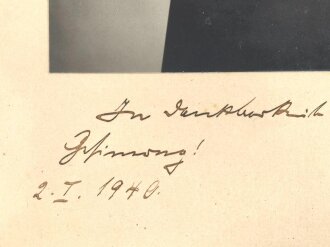 In Dankbarkeit
Gesinnung!
2.I.1940.